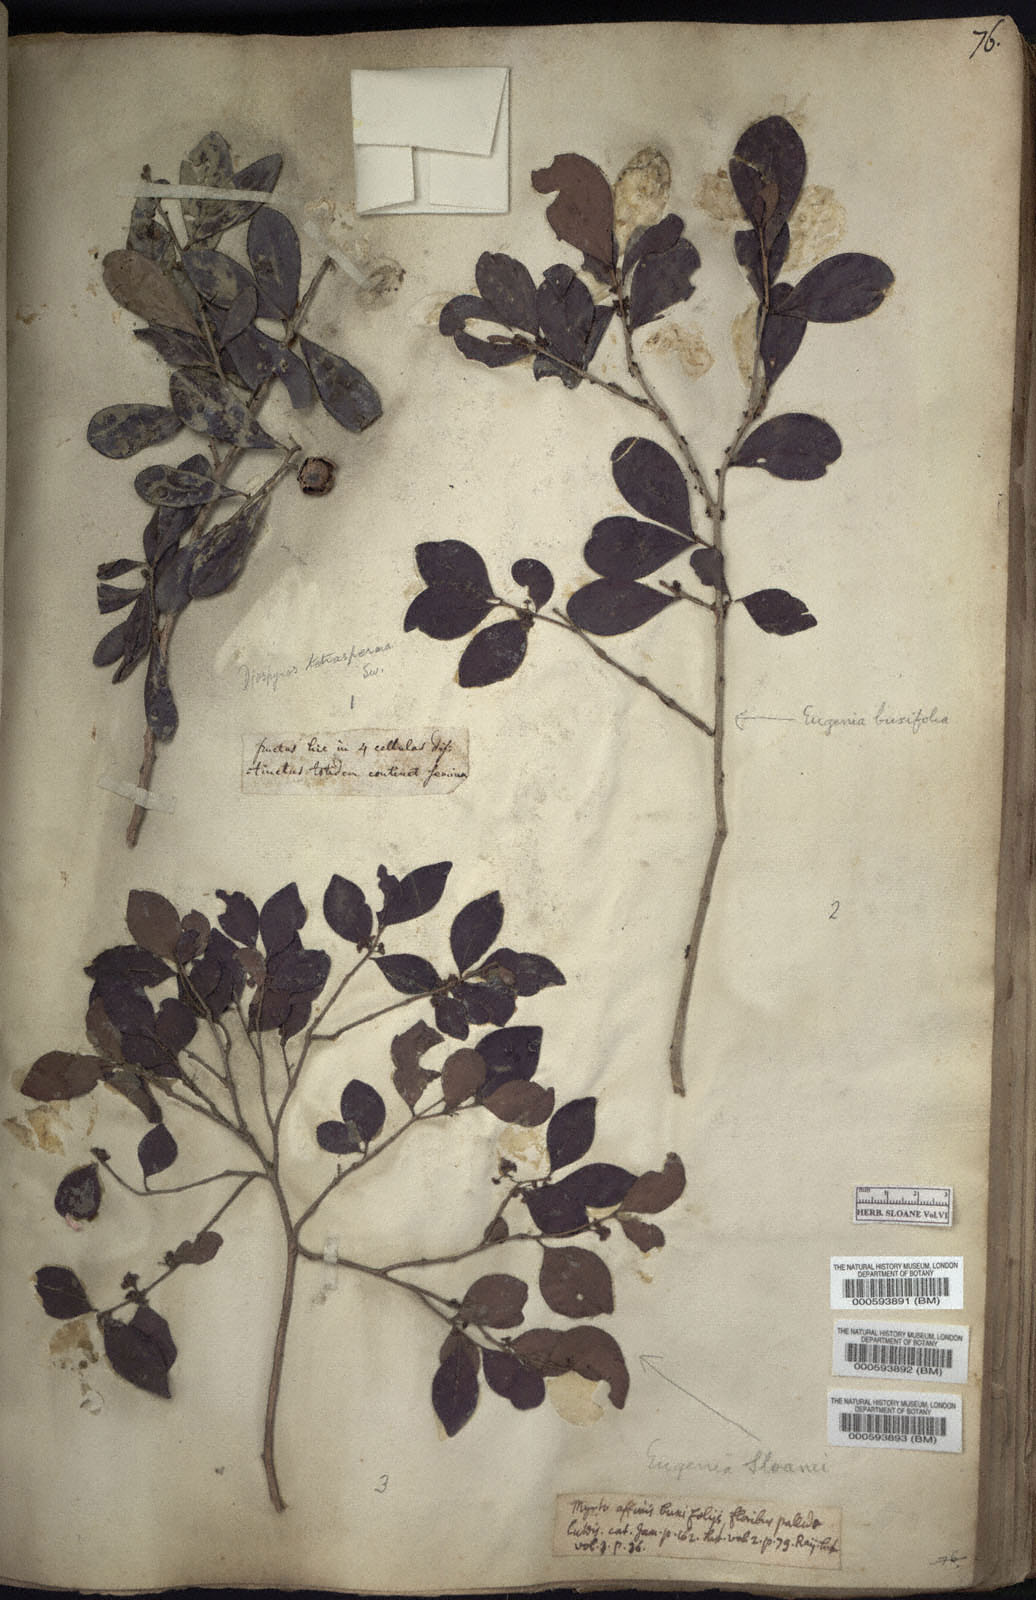 76.
Diospyros tetrasperma
Sw.
1
fructus hic in 4 cellulas dis-
tinctus totidem continet semina
Eugenia buxifolia
2
mm 1 2 3
HERB. SLOANE Vol.VI
THE NATURAL HISTORY MUSEUM, LONDON
DEPARTMENT OF BOTANY
000593891 (BM)
THE NATURAL HISTORY MUSEUM, LONDON
DEPARTMENT OF BOTANY
000593892 (BM)
THE NATURAL HISTORY MUSEUM, LONDON
DEPARTMENT OF BOTANY
000593893 (BM)
Eugenia Sloanei
3
Myrto affinis buxi folijs, floribus pallide
luteis. cat. Jam. p. 162. hist. vol 2. p. 79. Raij hist.
vol. 3. p. 36.
76.